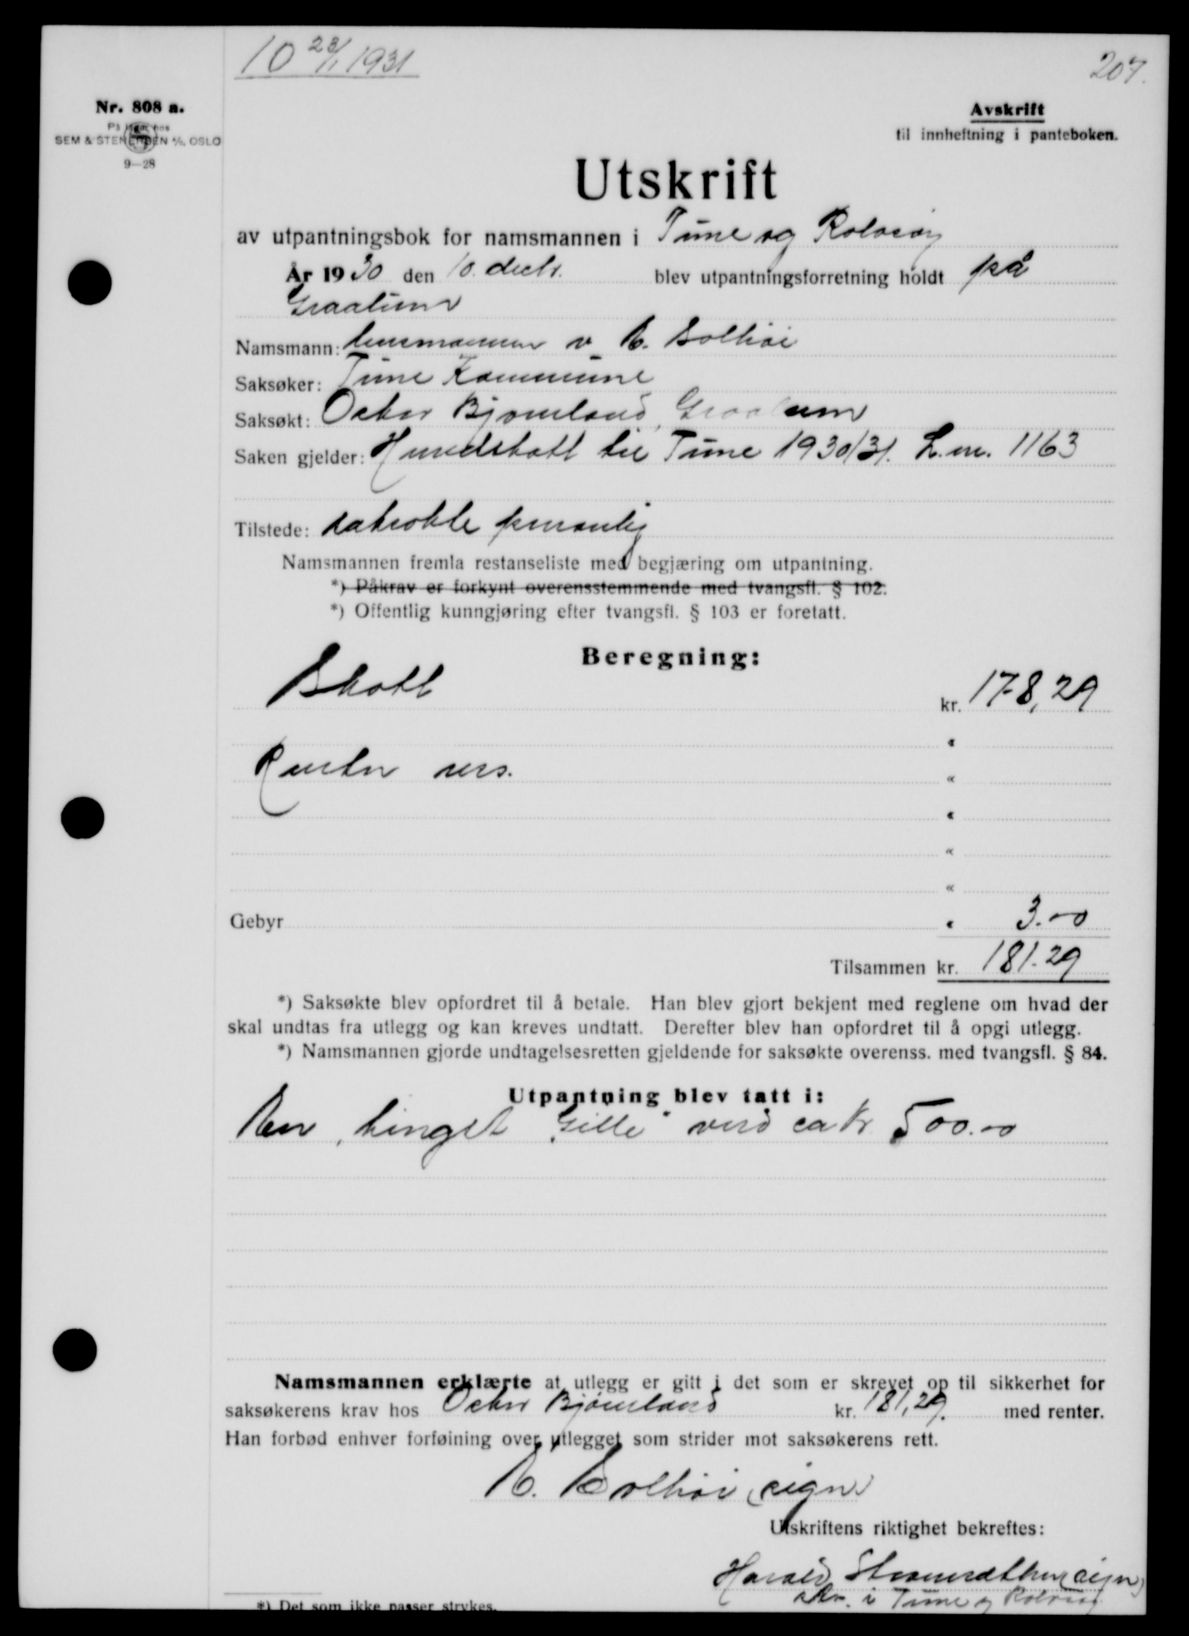 10 23/1 1931
207.
Nr. 808 a.
På lager hos
SEM & STENERSEN A/S, OSLO
9—28
Avskrift
til innheftning i panteboken.
Utskrift
av utpantningsbok for namsmannen i Tune og Rolvsøy
År 1930 den 10. decbr. blev utpantningsforretning holdt på
Graalum
Namsmann: lensmannen v B. Solhøi
Saksøker: Tune Kommune
Saksøkt: Oskar Bjørnland, Graalum
Saken gjelder: skatt til Tune 1930/31. L.nr. 1163
Tilstede: saksøkte personlig
Namsmannen fremla restanseliste med begjæring om utpantning.
*) Påkrav er forkynt overensstemmende med tvangsfl. § 102.
*) Offentlig kunngjøring efter tvangsfl. § 103 er foretatt.
Beregning:
Skatt kr. 178,29
"
Renter res. "
"
"
"
Gebyr " 3.00
Tilsammen kr. 181.29
*) Saksøkte blev opfordret til å betale. Han blev gjort bekjent med reglene om hvad der
skal undtas fra utlegg og kan kreves undtatt. Derefter blev han opfordret til å opgi utlegg.
*) Namsmannen gjorde undtagelsesretten gjeldende for saksøkte overenss. med tvangsfl. § 84.
Utpantning blev tatt i:
"Gille" verd ca kr 500.00
Namsmannen erklærte at utlegg er gitt i det som er skrevet op til sikkerhet for
saksøkerens krav hos Oskar Bjørnland kr. 181,29. med renter.
Han forbød enhver forføining over utlegget som strider mot saksøkerens rett.
B. Solhøi (sign)
Utskriftens riktighet bekreftes:
Harald (sign)
i Tune og Rolvsøy
*) Det som ikke passer strykes.